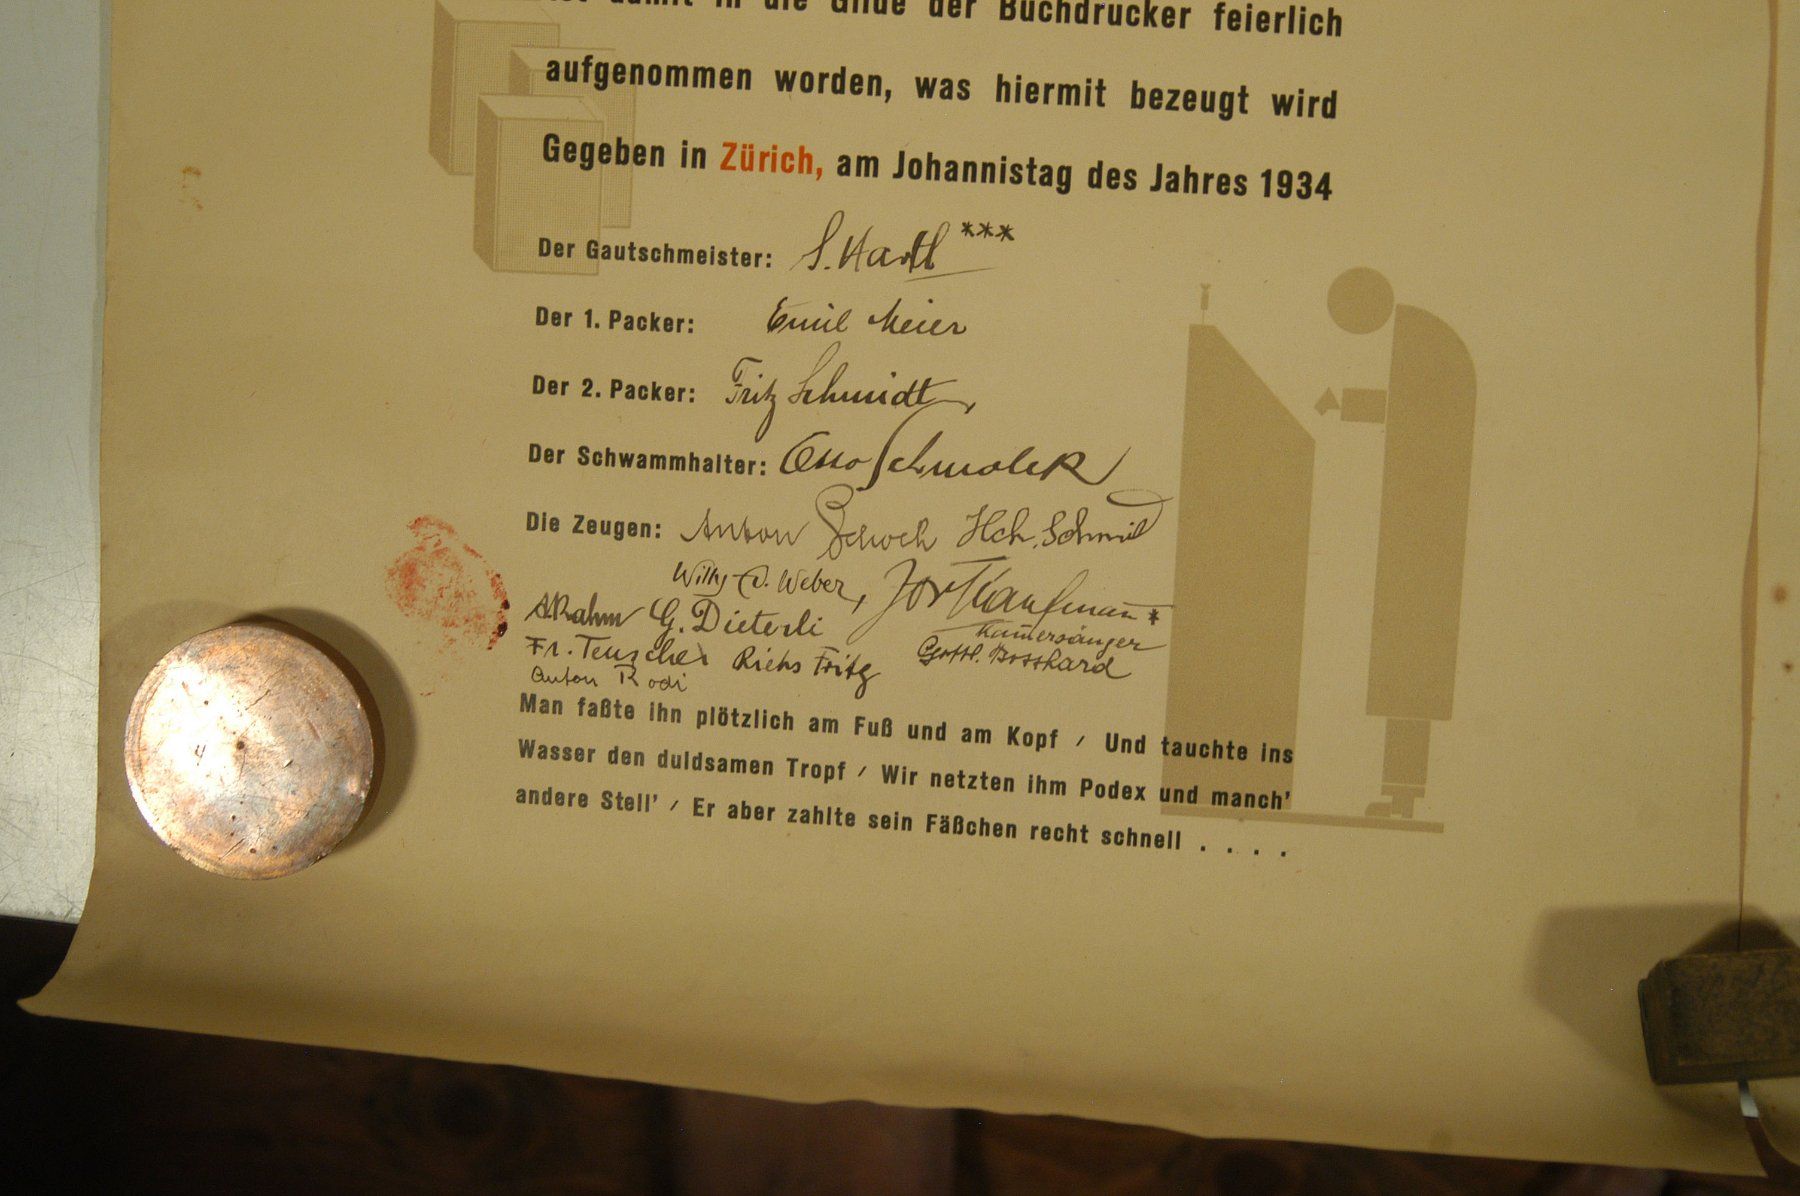 damit in die Gilde der Buchdrucker feierlich
aufgenommen worden, was hiermit bezeugt wird
Gegeben in Zürich, am Johannistag des Jahres 1934
Der Gautschmeister: S. Hartl ***
Der 1. Packer: Emil Meier
Der 2. Packer: Fritz Schmidt
Der Schwammhalter: Otto
Die Zeugen: Anton Schoch Hch. Schmid
Willy Weber, Kaufmann *
A. Rahm G. Dieterli Kamersänger
Fr. Teuscher Fritz Gottl. Bosshard
Anton Rodi
Man faßte ihn plötzlich am Fuß und am Kopf / Und tauchte ins
Wasser den duldsamen Tropf / Wir netzten ihm Podex und manch'
andere Stell' / Er aber zahlte sein Fäßchen recht schnell . . . .